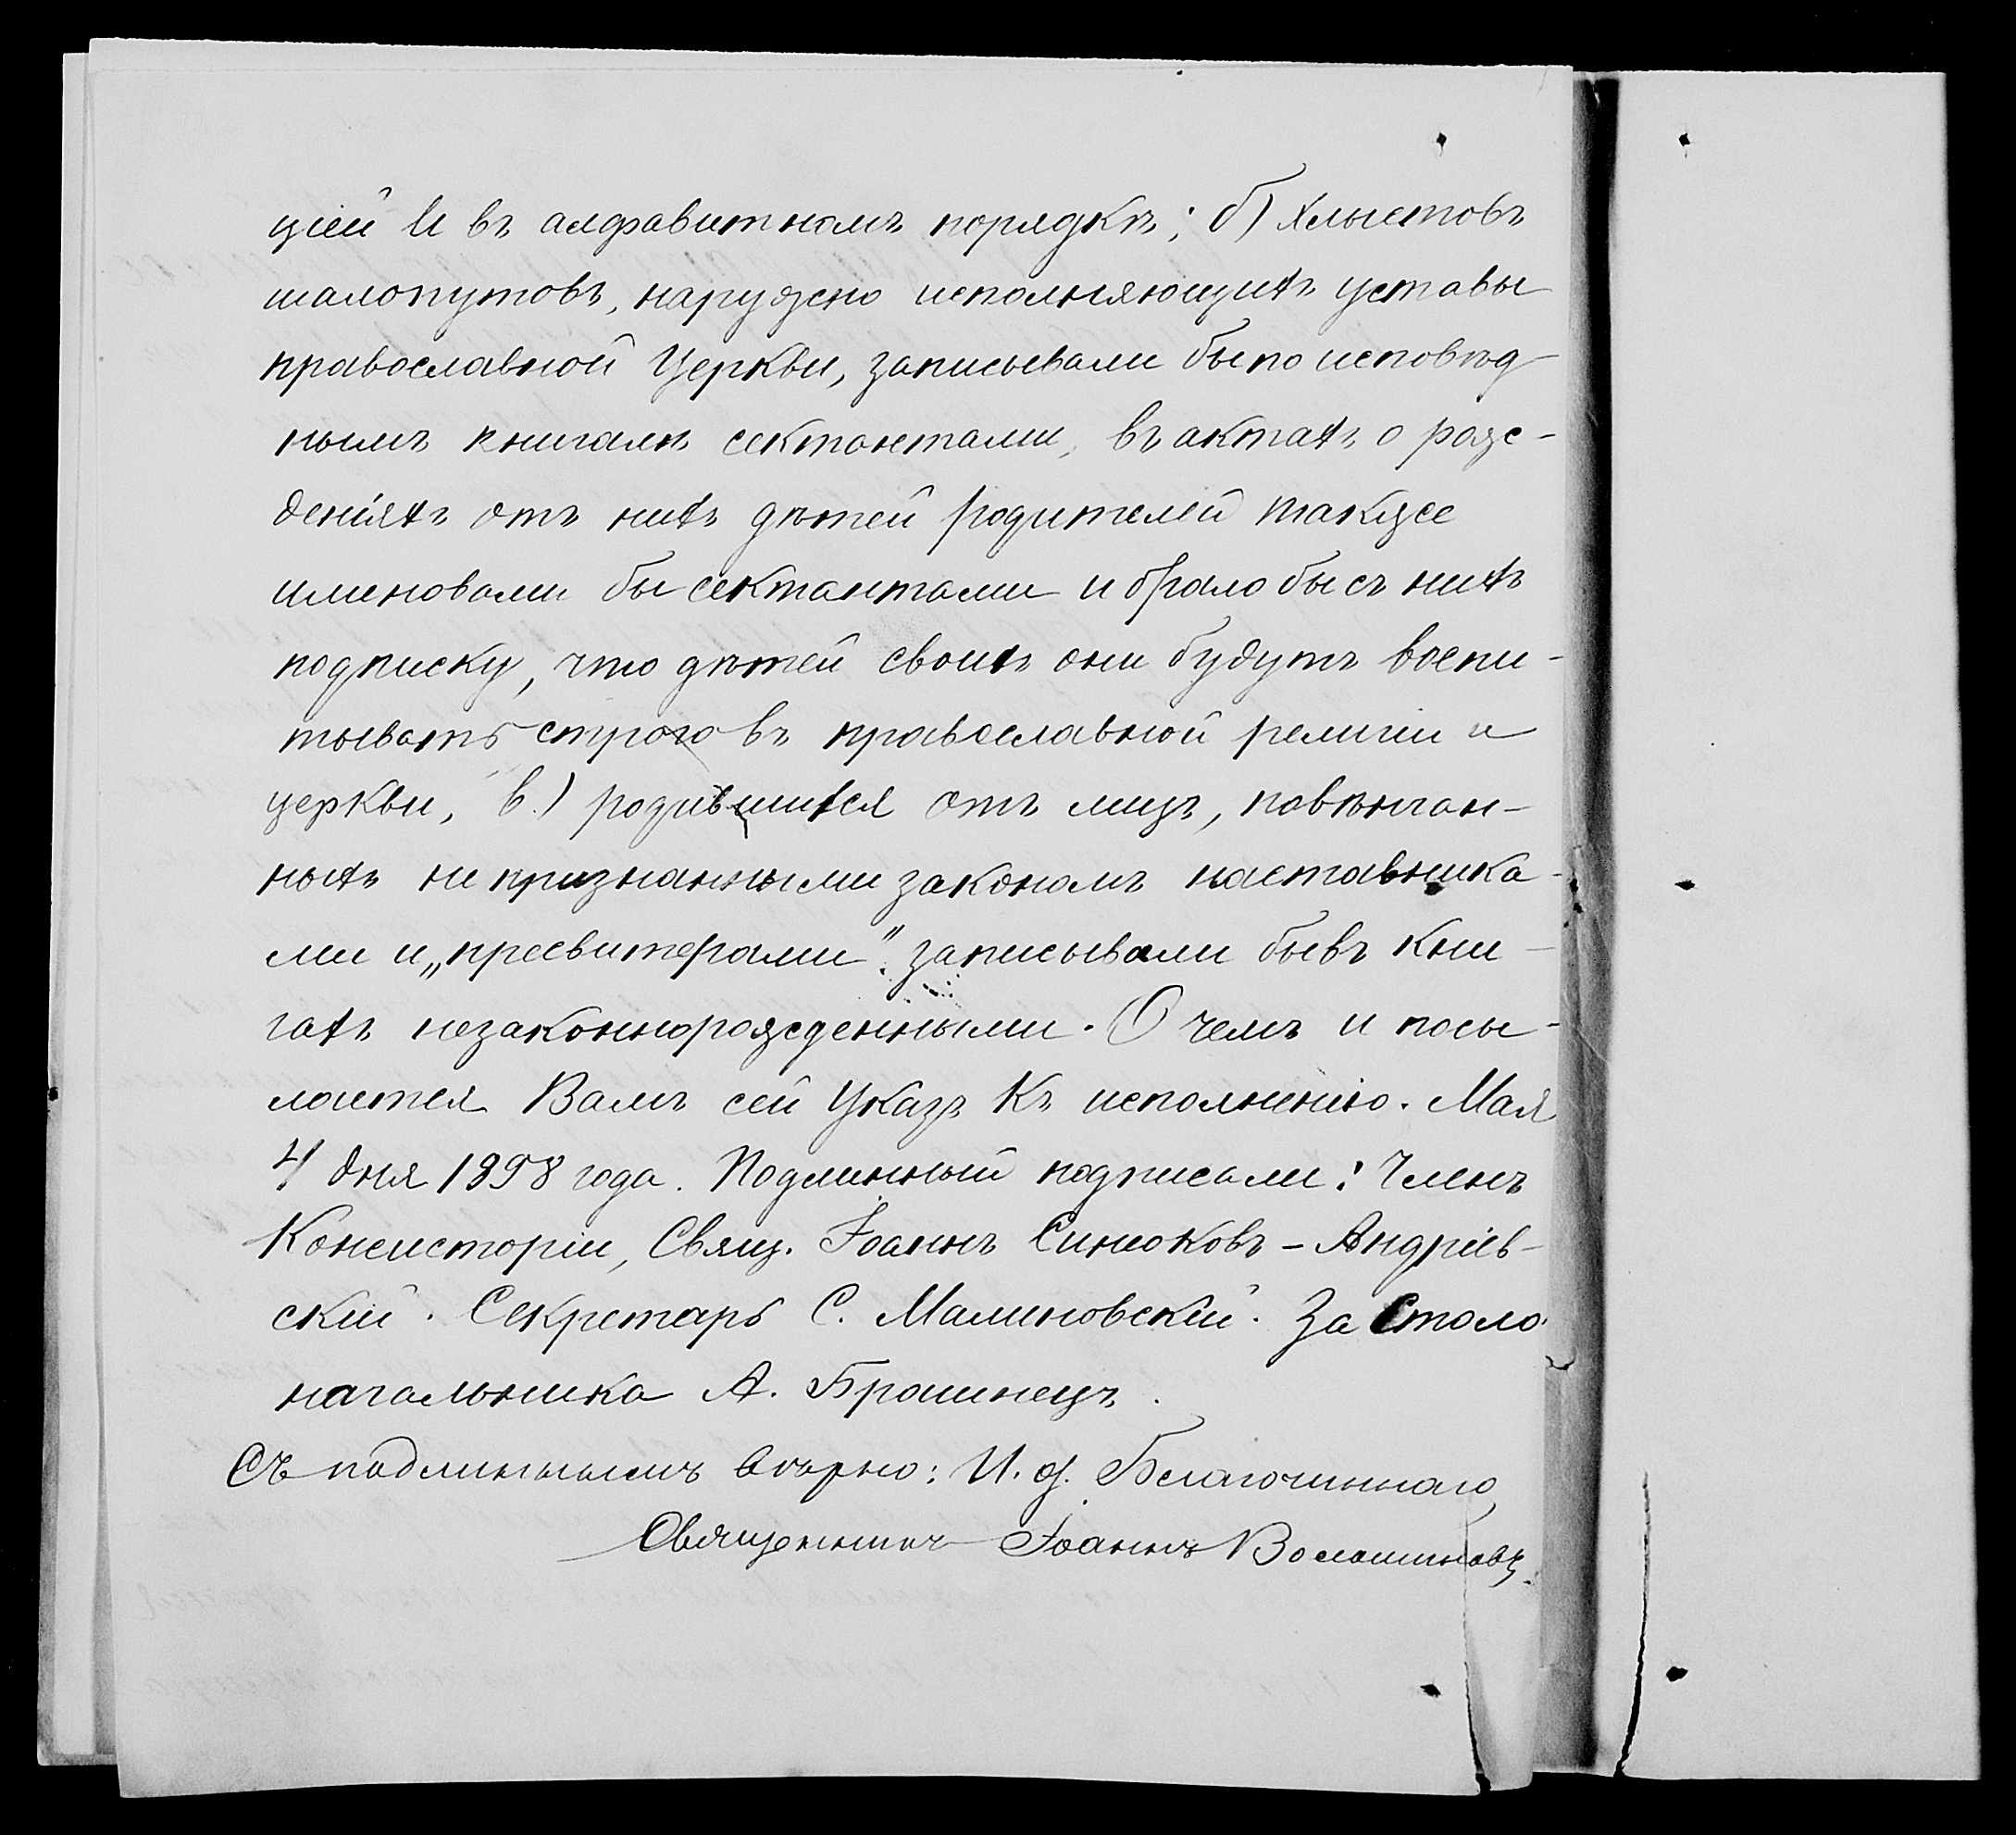 ціей И въ алфавитномъ порядкѣ; б) Хлыстовъ
шалопутовъ, наружно исполняющихъ уставы
православной Церкви, записывали бы по исповѣд-
нымъ книгамъ сектантами, въ актахъ о рож-
деніяхъ отъ нихъ дѣтей родителей также
именовали бы сектантами и брало бы съ нихъ
подписку, что дѣтей своихъ они будутъ воспи-
тывать строго въ православной религіи и
церкви, в.) родившихся отъ лицъ, повѣнчан-
ныхъ не признанными закономъ наставника-
ми и „пресвитерами". записывали бы въ кни-
гахъ незаконнорожденными. О чемъ и посы-
лается Вамъ сей Указъ къ исполненію. Мая
4 дня 1898 года. Подлинный подписали: Членъ
Консисторіи, Свящ. Іоаннъ Синюковъ-Андріев-
скій. Секретарь С. Малиновскій. За Столо-
начальника А. Брашнецъ.
Съ подлиннымъ вѣрно: И. д. Благочиннаго,
Священникъ Іоаннъ Волошиновъ.